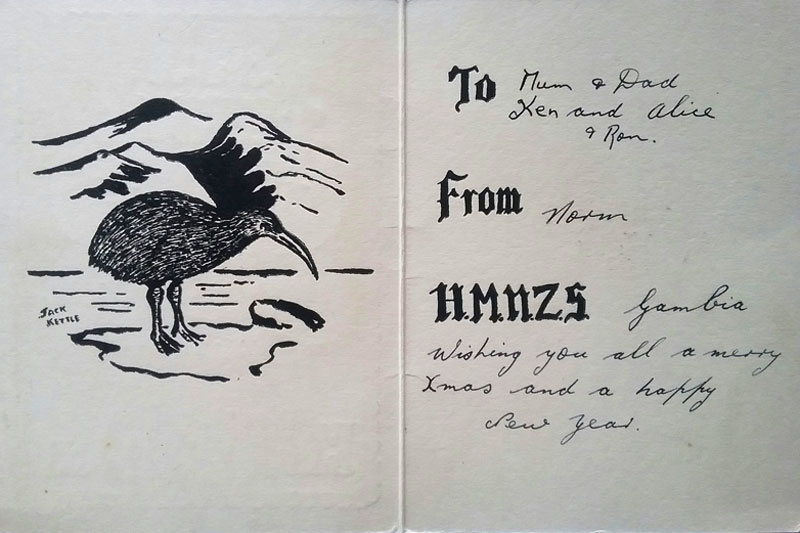 JACK
KETTLE
To Mum & Dad
Ken and Alice
& Ron.
From Norm
H.M.N.Z.S. Gambia
Wishing you all a merry
Xmas and a happy
New Year.